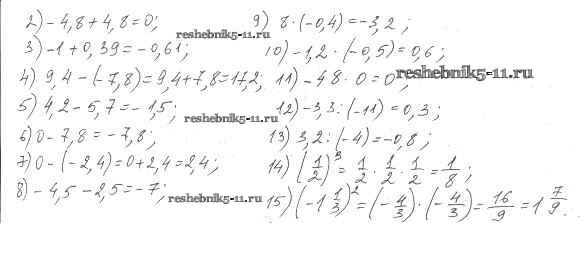 2) - 4,8 + 4,8 = 0;
3) -1 + 0,39 = - 0,61;
4) 9,4 - (-7,8) = 9,4 + 7,8 = 17,2;
5) 4,2 - 5,7 = - 1,5;
6) 0 - 7,8 = - 7,8;
7) 0 - (- 2,4) = 0 + 2,4 = 2,4;
8) - 4,5 - 2,5 = - 7;
9) 8 · (-0,4) = -3,2;
10) -1,2 · (-0,5) = 0,6;
11) -48 · 0 = 0;
12) -3,3 : (-11) = 0,3;
13) 3,2 : (-4) = -0,8;
14) (1/2)³ = 1/2 · 1/2 · 1/2 = 1/8;
15) (-1 1/3)² = (- 4/3) · (- 4/3) = 16/9 = 1 7/9.
reshebnik5-11.ru
reshebnik5-11.ru
reshebnik5-11.ru
reshebnik5-11.ru